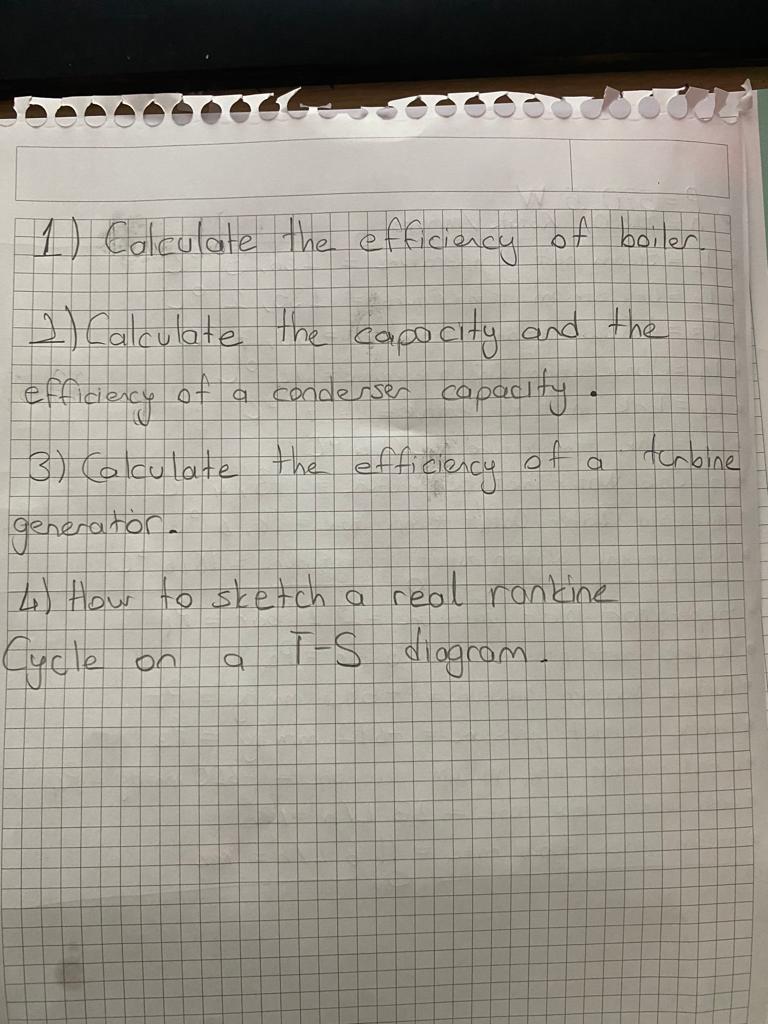 1) Calculate the efficiency of boiler.
2) Calculate the capacity and the
efficiency of a condenser capacity.
3) Calculate the efficiency of a turbine
generator.
4) How to sketch a real rankine
Cycle on a T-S diagram.